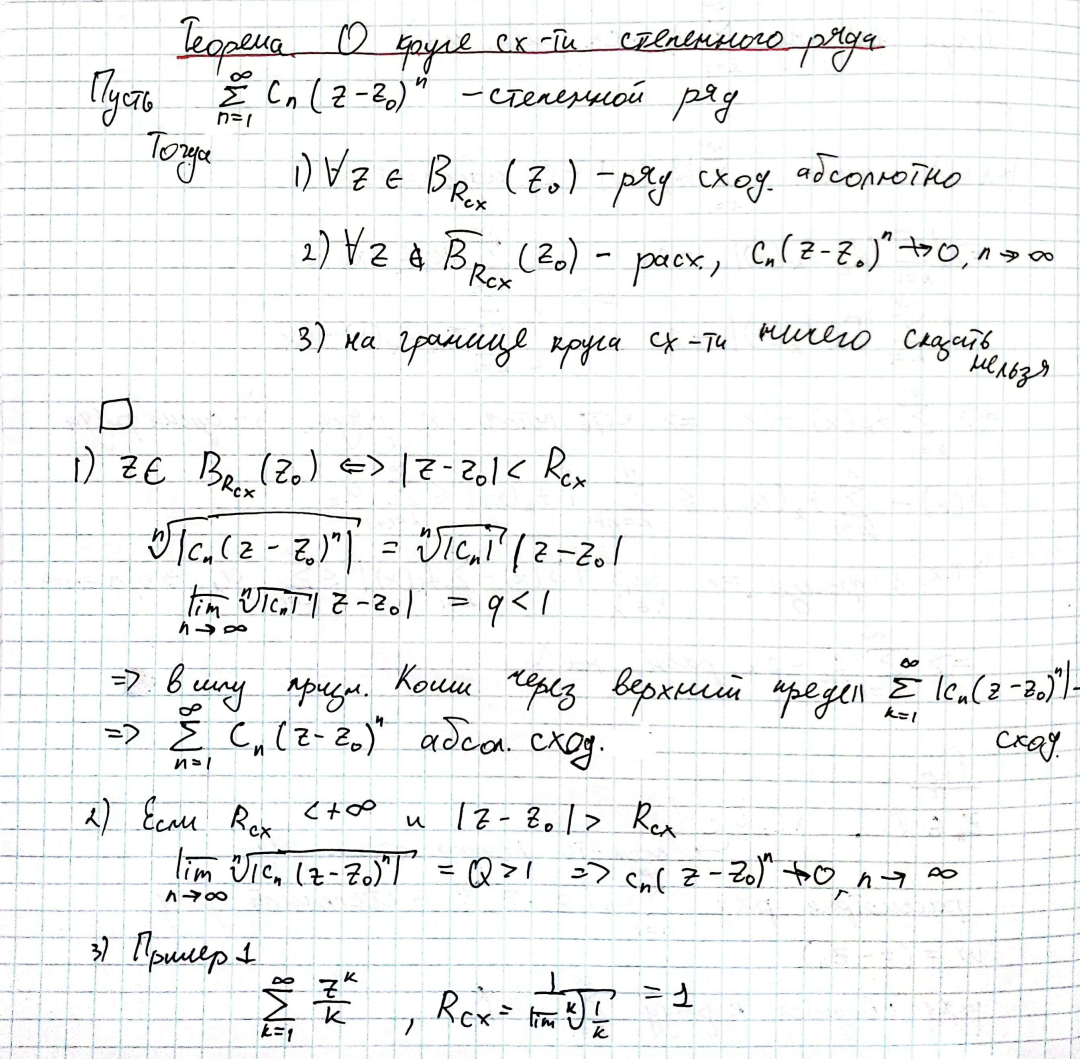 Теорема О круге сх-ти степенного ряда
Пусть $\sum_{n=1}^{\infty} c_n (z-z_0)^n$ – степенной ряд
Тогда
1) $\forall z \in B_{R_{сх}}(z_0)$ – ряд сход. абсолютно
2) $\forall z \notin \overline{B}_{R_{сх}}(z_0)$ – расх., $c_n(z-z_0)^n \nrightarrow 0, n \to \infty$
3) на границе круга сх-ти ничего сказать нельзя
□
1) $z \in B_{R_{сх}}(z_0) \Leftrightarrow |z-z_0| < R_{сх}$
$\sqrt[n]{|c_n(z-z_0)^n|} = \sqrt[n]{|c_n|} |z-z_0|$
$\overline{\lim}_{n \to \infty} \sqrt[n]{|c_n|} |z-z_0| = q < 1$
$\Rightarrow$ в силу призн. Коши через верхний предел $\sum_{k=1}^{\infty} |c_n(z-z_0)^n|$ – сход.
$\Rightarrow \sum_{n=1}^{\infty} c_n(z-z_0)^n$ абсол. сход.
2) Если $R_{сх} < +\infty$ и $|z-z_0| > R_{сх}$
$\overline{\lim}_{n \to \infty} \sqrt[n]{|c_n(z-z_0)^n|} = Q > 1 \Rightarrow c_n(z-z_0)^n \nrightarrow 0, n \to \infty$
3) Пример 1
$\sum_{k=1}^{\infty} \frac{z^k}{k}, R_{сх} = \frac{1}{\overline{\lim} \sqrt[k]{\frac{1}{k}}} = 1$